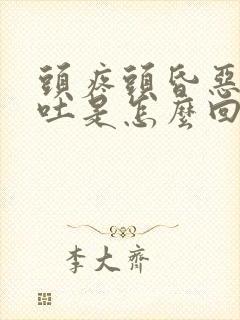 頭疼頭昏惡
吐是怎麼回
李大齊